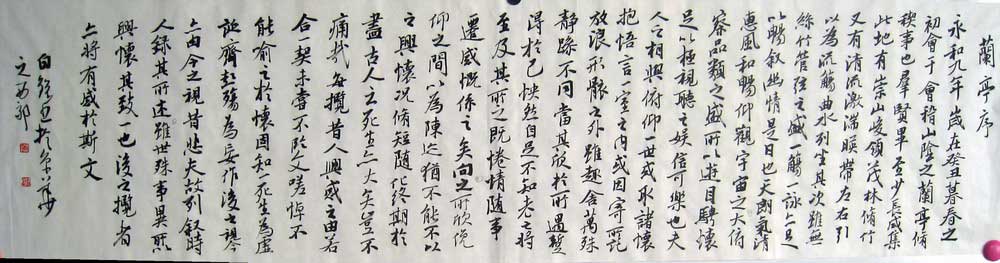 蘭亭序
永和九年歲在癸丑暮春之
初會于會稽山陰之蘭亭脩
禊事也羣賢畢至少長咸集
此地有崇山峻領茂林脩竹
又有清流激湍暎帶左右引
以為流觴曲水列坐其次雖無
絲竹管弦之盛一觴一詠亦足
以暢敘幽情是日也天朗氣清
惠風和暢仰觀宇宙之大俯
察品類之盛所以遊目騁懷
足以極視聽之娛信可樂也夫
人之相與俯仰一世或取諸懷
抱悟言一室之內或因寄所託
放浪形骸之外雖趣舍萬殊
靜躁不同當其欣於所遇蹔
得於己怏然自足不知老之將
至及其所之既惓情隨事
遷感慨係之矣向之所欣俛
仰之間以為陳迹猶不能不以
之興懷況脩短隨化終期於
盡古人云死生亦大矣豈不
痛哉每攬昔人興感之由若
合一契未嘗不臨文嗟悼不
能喻之於懷固知一死生為虛
誕齊彭殤為妄作後之
亦由今之視昔悲夫故列敘時
人錄其所述雖世殊事異所
興懷其致一也後之攬者
亦將有感於斯文